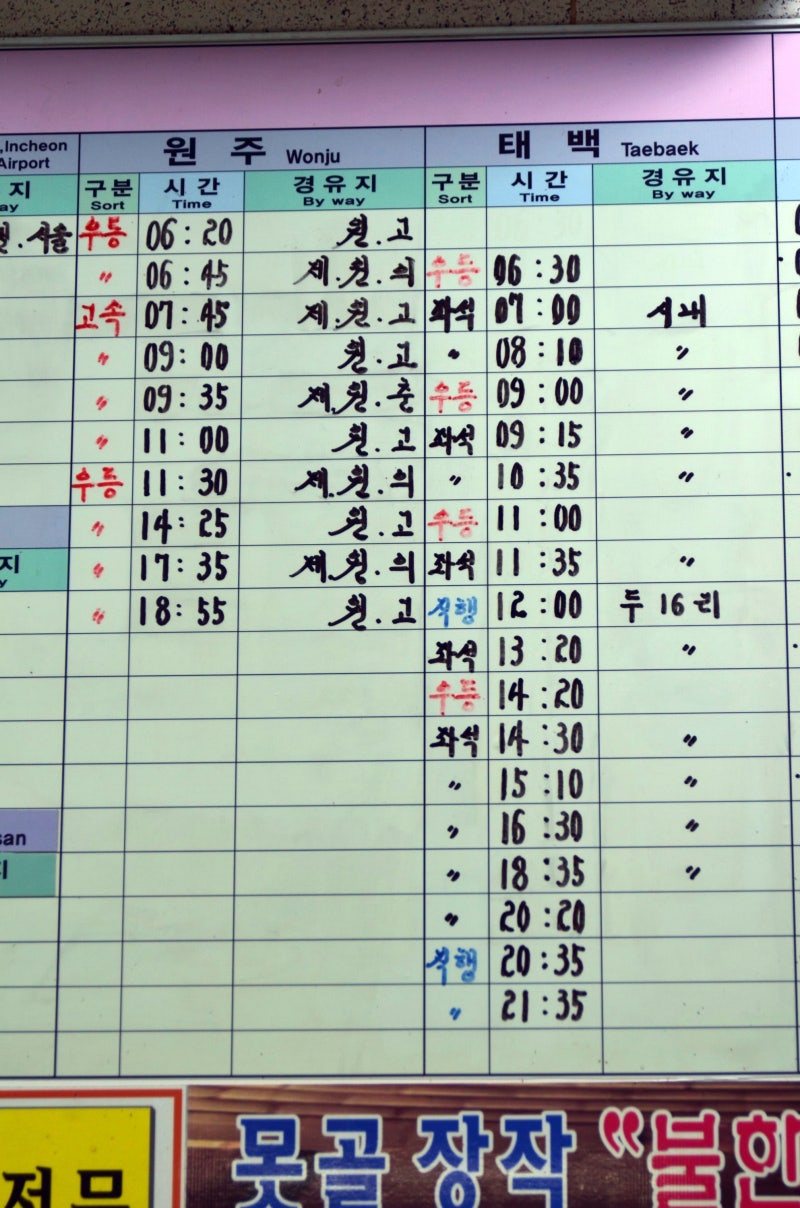 ,Incheon
Airport
원 주 Wonju
태 백 Taebaek
지
ay
구분
Sort
시 간
Time
경 유 지
By way
구분
Sort
시 간
Time
경 유 지
By way
.서울 우등 06:20 원.고
〃 06:45 제.원.의 우등 06:30
고속 07:45 제.원.고 좌석 07:00 시내
〃 09:00 원.고 〃 08:10 〃
〃 09:35 제.원.춘 우등 09:00 〃
〃 11:00 원.고 좌석 09:15 〃
우등 11:30 제.원.의 〃 10:35 〃
〃 14:25 원.고 우등 11:00
지 〃 17:35 제.원.의 좌석 11:35 〃
y
〃 18:55 원.고 직행 12:00 두 16리
좌석 13:20 〃
우등 14:20
좌석 14:30 〃
〃 15:10 〃
san 〃 16:30 〃
〃 18:35 〃
〃 20:20
직행 20:35
〃 21:35
전문
못골 장작 “불한